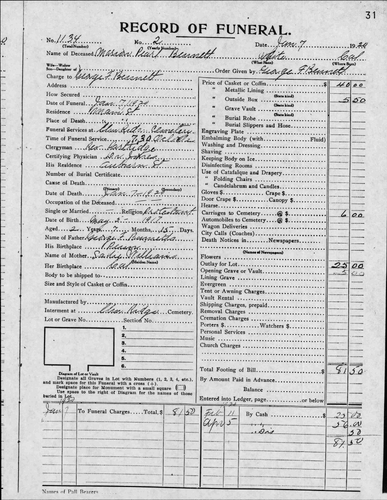 31
RECORD OF FUNERAL.
No. 1134 2 Date Jan 7 1920
(Total Number) (Yearly Number)
Name of Deceased Marion Pearl Bennett White Cal
Charge to George F Bennett Order Given by George F Bennett
Address
How Secured
Date of Funeral Jan 7 1920
Residence
Place of Death
Funeral Services at Cemetery
Time of Service
Clergyman Rev.
Certifying Physician
His Residence
Number of Burial Certificate
Cause of Death
Date of Death Jan
Occupation of the Deceased
Single or Married Religion Protestant
Date of Birth May 1917
Aged 2 Years 7 Months 15 Days
Name of Father George F Bennett
His Birthplace
Name of Mother Williams
(Maiden Name)
Her Birthplace Cal
Body to be shipped to
Size and Style of Casket or Coffin
Manufactured by
Interment at Cemetery.
Lot or Grave No. Section No.
1.
2.
3.
4.
5.
6.
Diagram of Lot or Vault
Designate all Graves in Lot with Numbers (1, 2, 3, 4, etc.),
and mark space for this Funeral with a cross (+)
Designate place for Monument with a small square
Use space to the right of Diagram for the names of those
buried in Lot.
Price of Casket or Coffin $ 40 00
Metallic Lining
Outside Box 5 50
Grave Vault
Burial Robe
Burial Slippers and Hose
Engraving Plate
Embalming Body (with Fluid)
Washing and Dressing
Shaving
Keeping Body on Ice
Disinfecting Rooms
Use of Catafalque and Drapery
" Folding Chairs
" Candelabrum and Candles
Gloves $ Crape $
Door Crape $ Canopy $
Hearse
Carriages to Cemetery @ $ 6 00
Automobiles to Cemetery @ $
Wagon Deliveries
City Calls (Coaches)
Death Notices in Newspapers
(Names of Newspapers)
Flowers
Outlay for Lot 25 00
Opening Grave or Vault 5 00
Lining Grave
Evergreen
Tent or Awning Charges
Vault Rental
Shipping Charges, prepaid
Removal Charges
Cremation Charges
Porters $ Watchers $
Personal Services
Music
Church Charges
Total Footing of Bill $ 81 50
By Amount Paid in Advance
Balance
Entered into Ledger, page or below.
Jan 7 To Funeral Charges Total $ 81 50 Feb 11 By Cash 25 00
Apr 5 " 56 00
" Dis 50
81 50
Names of Pall Bearers